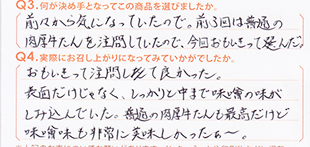 Q3.何が決め手となってこの商品を選びましたか。
前々から気になっていたので。前3回は普通の
肉厚牛たんを注文していたので、今回おもいきって選んだ。
Q4.実際にお召し上がりになってみていかがでしたか。
おもいきって注文して良かった。
表面だけじゃなく、しっかりと中まで味噌の味が
しみ込んでいた。普通の肉厚牛たんも最高だけど
味噌味も非常に美味しかったぁ〜。